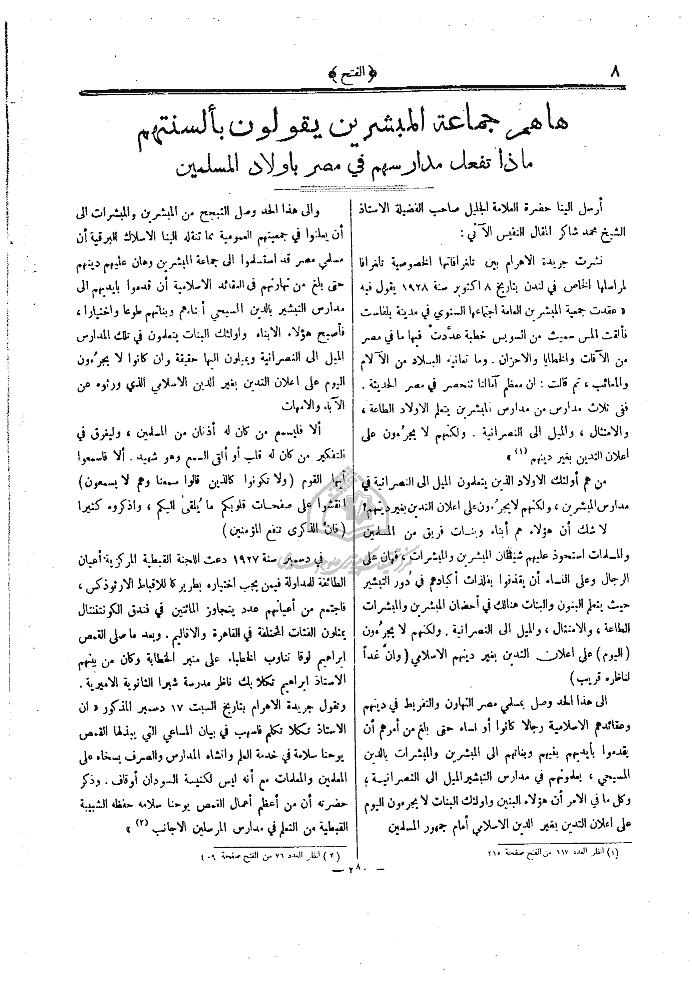 ٨
﴿ الفتح ﴾
هاهم جماعة المبشرين يقولون بألسنتهم
ماذا تفعل مدارسهم في مصر باولاد المسلمين
أرسل الينا حضرة العلامة الجليل صاحب الفضيلة الاستاذ
الشيخ محمد شاكر المقال النفيس الآتي :
نشرت جريدة الاهرام بين تلغرافاتها الخصوصية تلغرافا
لمراسلها الخاص في لندن بتاريخ ٨ اكتوبر سنة ١٩٢٨ يقول فيه
« عقدت جمعية المبشرين العامة اجتماعها السنوي في مدينة بلفاست
فألقت المس سميث من السويس خطبة عدَّدت فيها ما في مصر
من الآفات والخطايا والاحزان . وما تعانيه البلاد من الآلام
والمصائب ، ثم قالت : ان معظم آمالنا تنحصر في مصر الحديثة .
ففي ثلاث مدارس من مدارس المبشرين يتعلم الاولاد الطاعة ،
والامتثال ، والميل الى النصرانية . ولكنهم لا يجرءون على
اعلان التدين بغير دينهم (١) »
من هم أولئك الاولاد الذين يتعلمون الميل الى النصرانية في
مدارس المبشرين ، ولكنهم لا يجرءون على اعلان التدين بغير دينهم؟
لا شك أن هؤلاء هم أبناء وبنات فريق من المسلمين
والمسلمات استحوذ عليهم شيطان المبشرين والمبشرات ، فهان على
الرجال وعلى النساء أن يقذفوا بفلذات أكبادهم في دُور التبشير
حيث يتعلم البنون والبنات هنالك في أحضان المبشرين والمبشرات
الطاعة ، والامتثال ، والميل الى النصرانية . ولكنهم لا يجرءون
(اليوم) على اعلان التدين بغير دينهم الاسلامي (وان غداً
لناظره قريب)
الى هذا الحد وصل بمسلمي مصر التهاون والتفريط في دينهم
وعقائدهم الاسلامية رجالا كانوا أو نساء حتى بلغ من أمرهم أن
يقدموا بأيديهم بنيهم وبناتهم الى المبشرين والمبشرات بالدين
المسيحي ، يعلمونهم في مدارس التبشير الميل الى النصرانية ؛
وكل ما في الامر أن هؤلاء البنين واولئك البنات لا يجرءون اليوم
على اعلان التدين بغير الدين الاسلامي أمام جمهور المسلمين
(١) انظر العدد ١١٧ من الفتح صفحة ٢١٥
والى هذا الحد وصل التبجح من المبشرين والمبشرات الى
أن يعلنوا في جمعيتهم العمومية بما تنقله الينا الاسلاك البرقية أن
مسلمي مصر قد استسلموا الى جماعة المبشرين وهان عليهم دينهم
حتى بلغ من تهاونهم في العقائد الاسلامية أن قدموا بأيديهم الى
مدارس التبشير بالدين المسيحي أبناءهم وبناتهم طوعا واختيارا ،
فأصبح هؤلاء الابناء واولئك البنات يتعلمون في تلك المدارس
الميل الى النصرانية ويميلون اليها حقيقة وان كانوا لا يجرءون
اليوم على اعلان التدين بغير الدين الاسلامي الذي ورثوه عن
الآباء والامهات
ألا فليسمع من كان له أذنان من المسلمين ، وليغرق في
التفكير من كان له قلب أو ألقى السمع وهو شهيد . ألا فاسمعوا
أيها القوم (ولا تكونوا كالذين قالوا سمعنا وهم لا يسمعون)
انقشوا على صفحات قلوبكم ما يُلقى اليكم ، واذكروه كثيرا
(فان الذكرى تنفع المؤمنين)
في دسمبر سنة ١٩٢٧ دعت اللجنة القبطية المركزية أعيان
الطائفة للمداولة فيمن يجب اختياره بطريركا للاقباط الارثوذكس ،
فاجتمع من أعيانهم عدد يتجاوز المائتين في فندق الكونتننتال
يمثلون الفئات المختلفة في القاهرة والاقاليم . وبعد ما صلى القمص
ابراهيم لوقا تناوب الخطباء على منبر الخطابة وكان من بينهم
الاستاذ ابراهيم تكلا بك ناظر مدرسة شبرا الثانوية الاميرية .
وتقول جريدة الاهرام بتاريخ السبت ١٧ دسمبر المذكور « ان
الاستاذ تكلا تكلم فاسهب في بيان المساعي التي يبذلها القمص
يوحنا سلامة في خدمة العلم وانشاء المدارس والصرف بسخاء على
المعلمين والمعلمات مع أنه ليس لكنيسة السودان أوقاف . وذكر
حضرته أن من أعظم أعمال القمص يوحنا سلامه حفظه الشبيبة
القبطية من التعلم في مدارس المرسلين الاجانب (٢) »
(٢) أنظر العدد ٧٦ من الفتح صفحة
— ٢٨٠ —